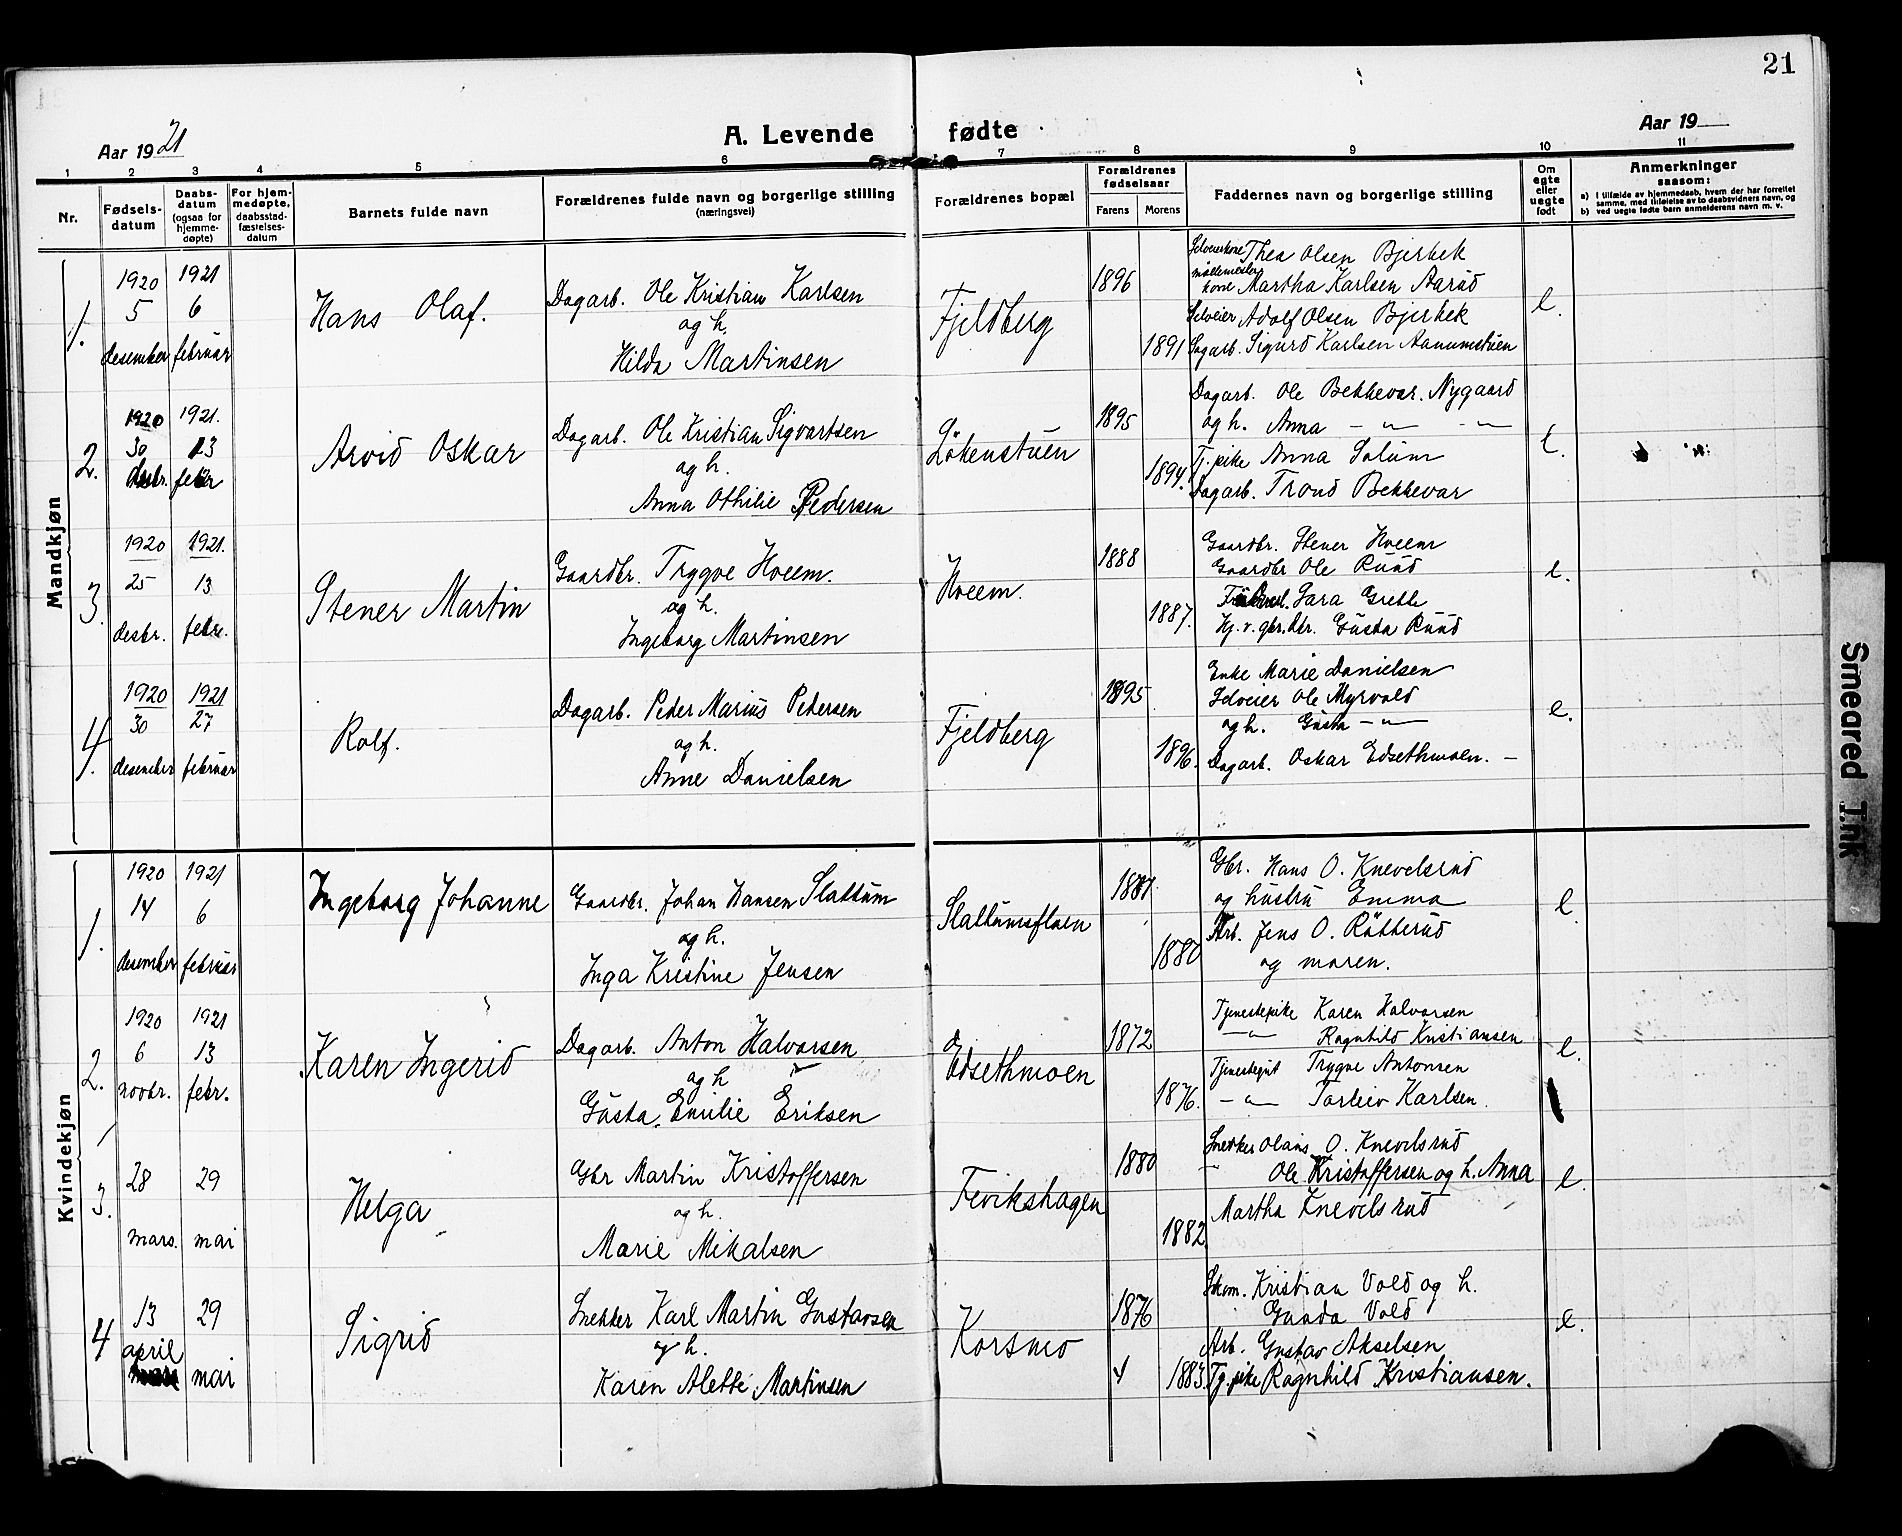 21
Aar 1921
A. Levende fødte
Aar 19
1 2 3 4 5 6 7 8 9 10 11
Nr.
Fødsels-
datum
Daabs-
datum
(ogsaa for
hjemme-
døpte)
For hjem-
medøpte,
daabsstad-
fæstelses-
datum
Barnets fulde navn
Forældrenes fulde navn og borgerlige stilling
(næringsvei)
Forældrenes bopæl
Forældrenes
fødselsaar
Farens Morens
Faddernes navn og borgerlige stilling
Om
egte
eller
uegte
født
Anmerkninger
saasom:
a) I tilfælde av hjemmedaab, hvem der har forrettet
samme, med tilføielse av to daabsvidners navn, og
b) ved uegte fødte barn anmelderens navn m. v.
Mandkjøn
1.
1920
5
desember
1921
6
februar
Hans Olaf.
Dagarb. Ole Kristian Karlsen
og h.
Hilda Martinsen
Fjeldberg
1896
1891
Selveierkone Thea Olsen Bjerbek
møllemester
kone Martha Karlsen Aarud
Selveier Adolf Olsen Bjerbek
Dagarb. Sigurd Karlsen Aanumstuen
e.
2.
1920
30
desbr.
1921.
13
febr
Arvid Oskar
Dagarb. Ole Kristian Sigvartsen
og h.
Anna Othilie Pedersen
Løkenstuen
1895
1894.
Dagarb. Ole Bekkevar. Nygaard
og h. Anna — " — " —
Tj. pike Anna Solum
Dagarb. Trond Bekkevar
e.
3.
1920
25
desbr.
1921.
13
febr.
Stener Martin
Gaardbr. Trygve Hveem.
og h.
Ingeborg Martinsen
Hveem.
1888
1887.
Gaardbr. Stener Hveem
Gaardbr Ole Ruud
Sara Grette
Hj. v. gbr.dtr. Gusta Ruud
e.
4.
1920
30
desember
1921
27
februar
Rolf.
Dagarb. Peder Marius Pedersen
og h.
Anne Danielsen
Fjeldberg
1895
1896.
Enke Marie Danielsen
Selveier Ole Myrvold
og h. Gusta — " —
Dagarb. Oskar Edsethmoen. —
e.
Kvindekjøn
1.
1920
14
desember
1921
6
februar
Ingeborg Johanne
Gaardbr. Johan Hansen Slattum
og h.
Inga Kristine Jensen
Slattumsfloen
1881
1880
Gbr. Hans O. Knevelsrud
og hustru Emma
Arb. Jens O. Røtterud
og maren.
e.
2.
1920
6
novbr.
1921
13
febr.
Karen Ingerid
Dagarb. Anton Halvorsen
og h
Gusta Emilie Eriksen
Edsethmoen
1872
1876.
Tjenestepike Karen Halvorsen
— " — Ragnhild Kristiansen
Tjenestegut Trygve Antonsen
— " — Torleiv Karlsen.
e.
3.
28
mars.
29
mai
Helga
Gbr Martin Kristoffersen
og h.
Marie Mikalsen
Fevikshagen
1880
1882
Snekker Olaus O. Knevelsrud
— Ole Kristoffersen og h. Anna
Martha Knevelsrud
e.
4
13
april
29
mai
Sigrid
Snekker Karl Martin Gustavsen
og h.
Karen Alette Martinsen
Korsmo
1876
4
1883
Skom. Kristian Vold og h.
Gunda Vold
Arb. Gustav Akselsen
Tj. pike Ragnhild Kristiansen.
e.
Smeared Ink